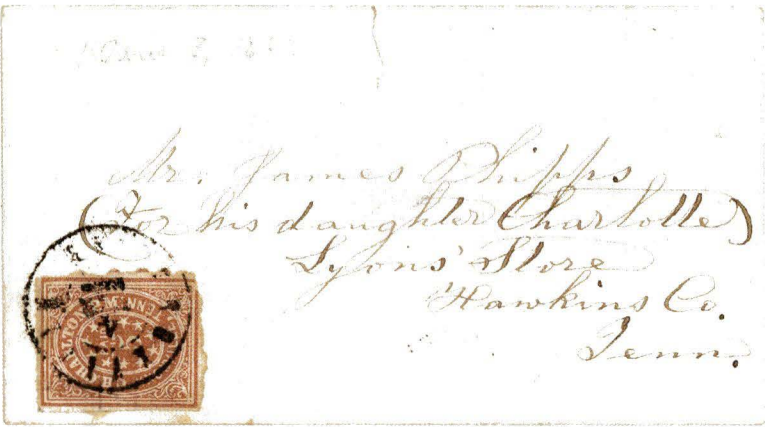 Mr. James Phipps
(For his daughter Charlotte)
Lyons' Store
Hawkins Co.
Tenn.